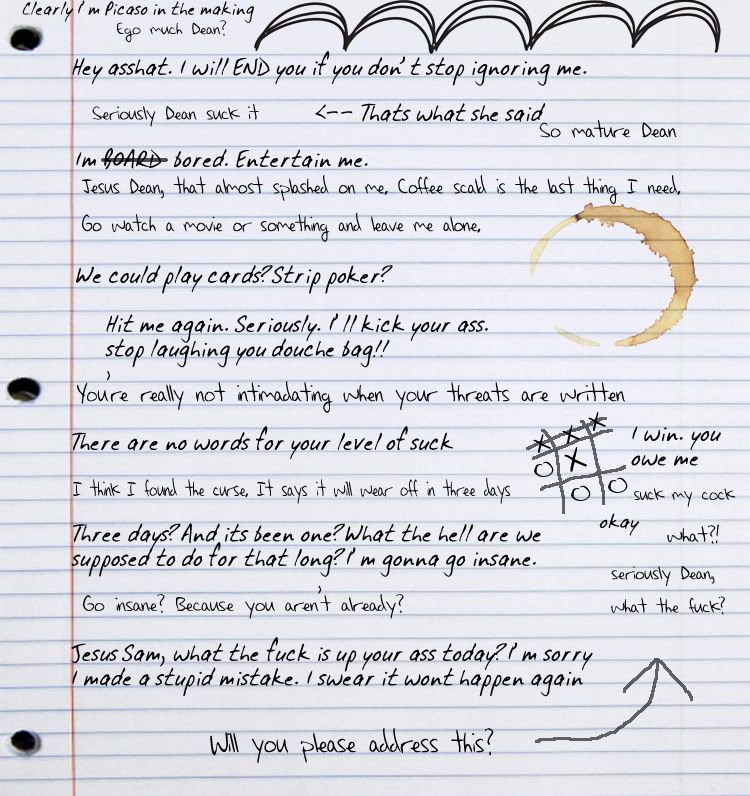 Clearly I'm Picaso in the making
Ego much Dean?
Hey asshat. I will END you if you don't stop ignoring me.
Seriously Dean suck it <-- Thats what she said
So mature Dean
Im BOARD bored. Entertain me.
Jesus Dean, that almost splashed on me, Coffee scald is the last thing I need,
Go watch a movie or something and leave me alone,
We could play cards? Strip poker?
Hit me again. Seriously. I'll kick your ass.
stop laughing you douche bag!!
You're really not intimadating when your threats are written
There are no words for your level of suck
X X X
O X
O O
I win. you
owe me
suck my cock
okay
what?!
seriously Dean,
what the fuck?
I think I found the curse, It says it will wear off in three days
Three days? And its been one? What the hell are we
supposed to do for that long? I'm gonna go insane.
Go insane? Because you aren't already?
Jesus Sam, what the fuck is up your ass today? I'm sorry
I made a stupid mistake. I swear it wont happen again
Will you please address this?